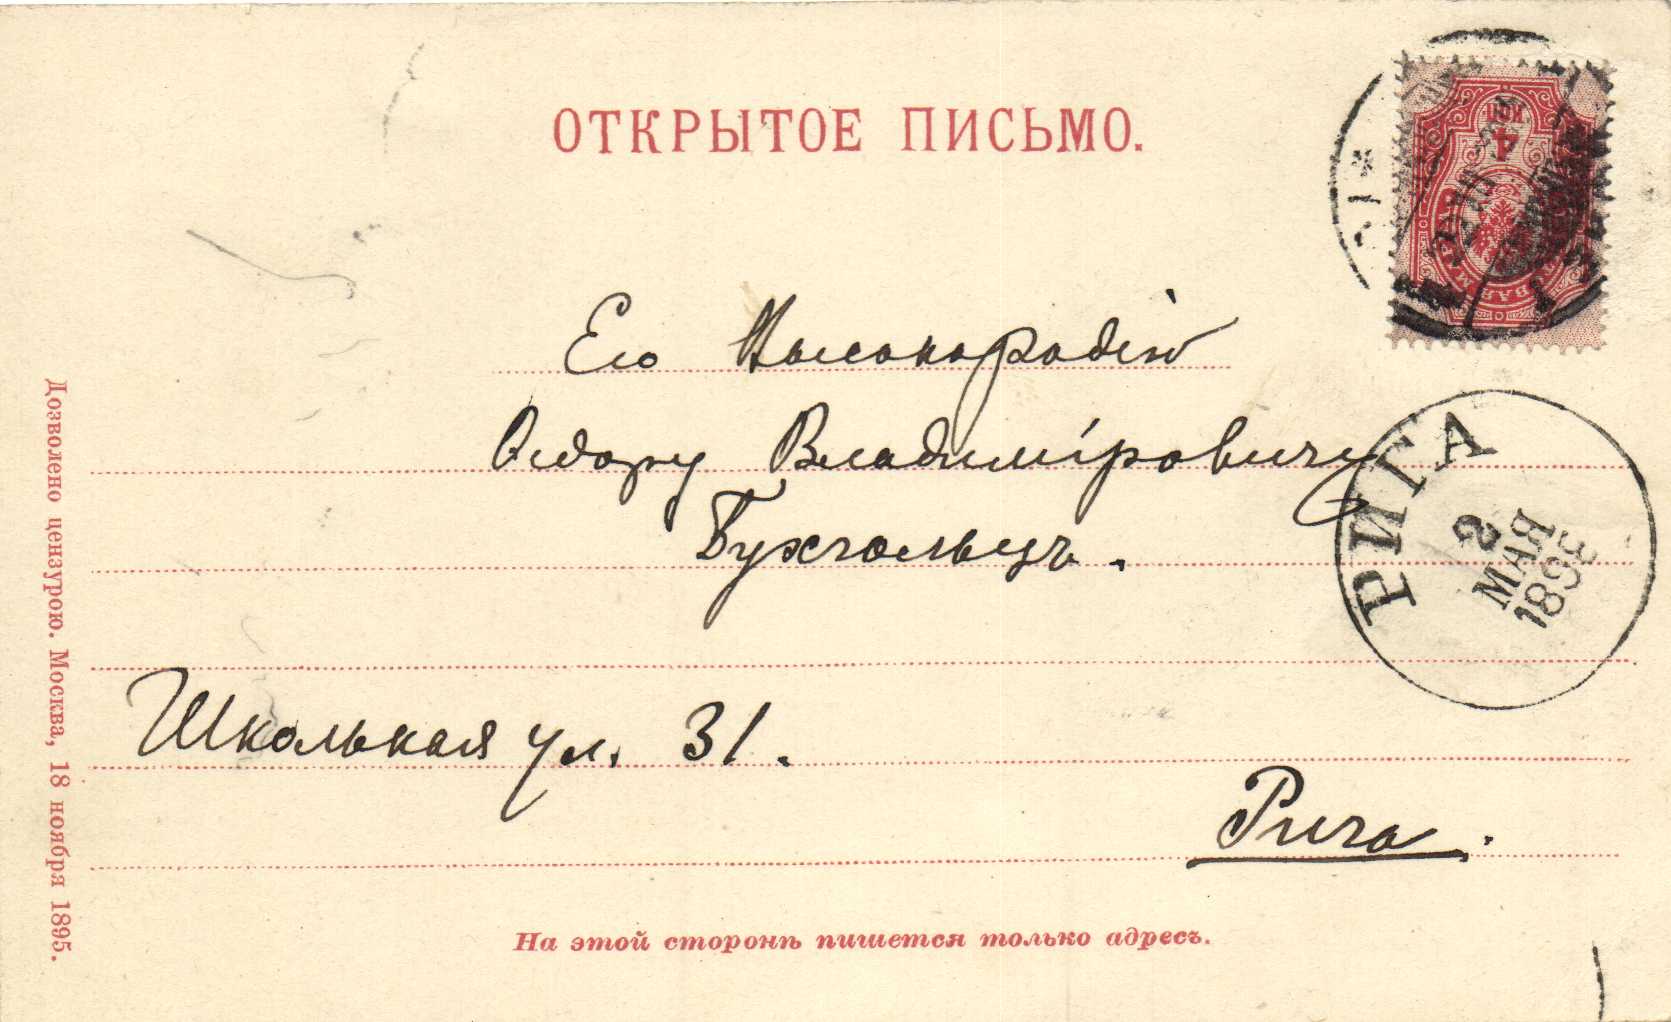 ОТКРЫТОЕ ПИСЬМО.
Его Высокородію
Ѳедору Владиміровичу
Бухгольцъ.
Школьная ул. 31.
Рига.
На этой сторонѣ пишется только адресъ.
Дозволено цензурою. Москва, 18 ноября 1895.
4
КОП
РИГА
2
МАЯ
1898